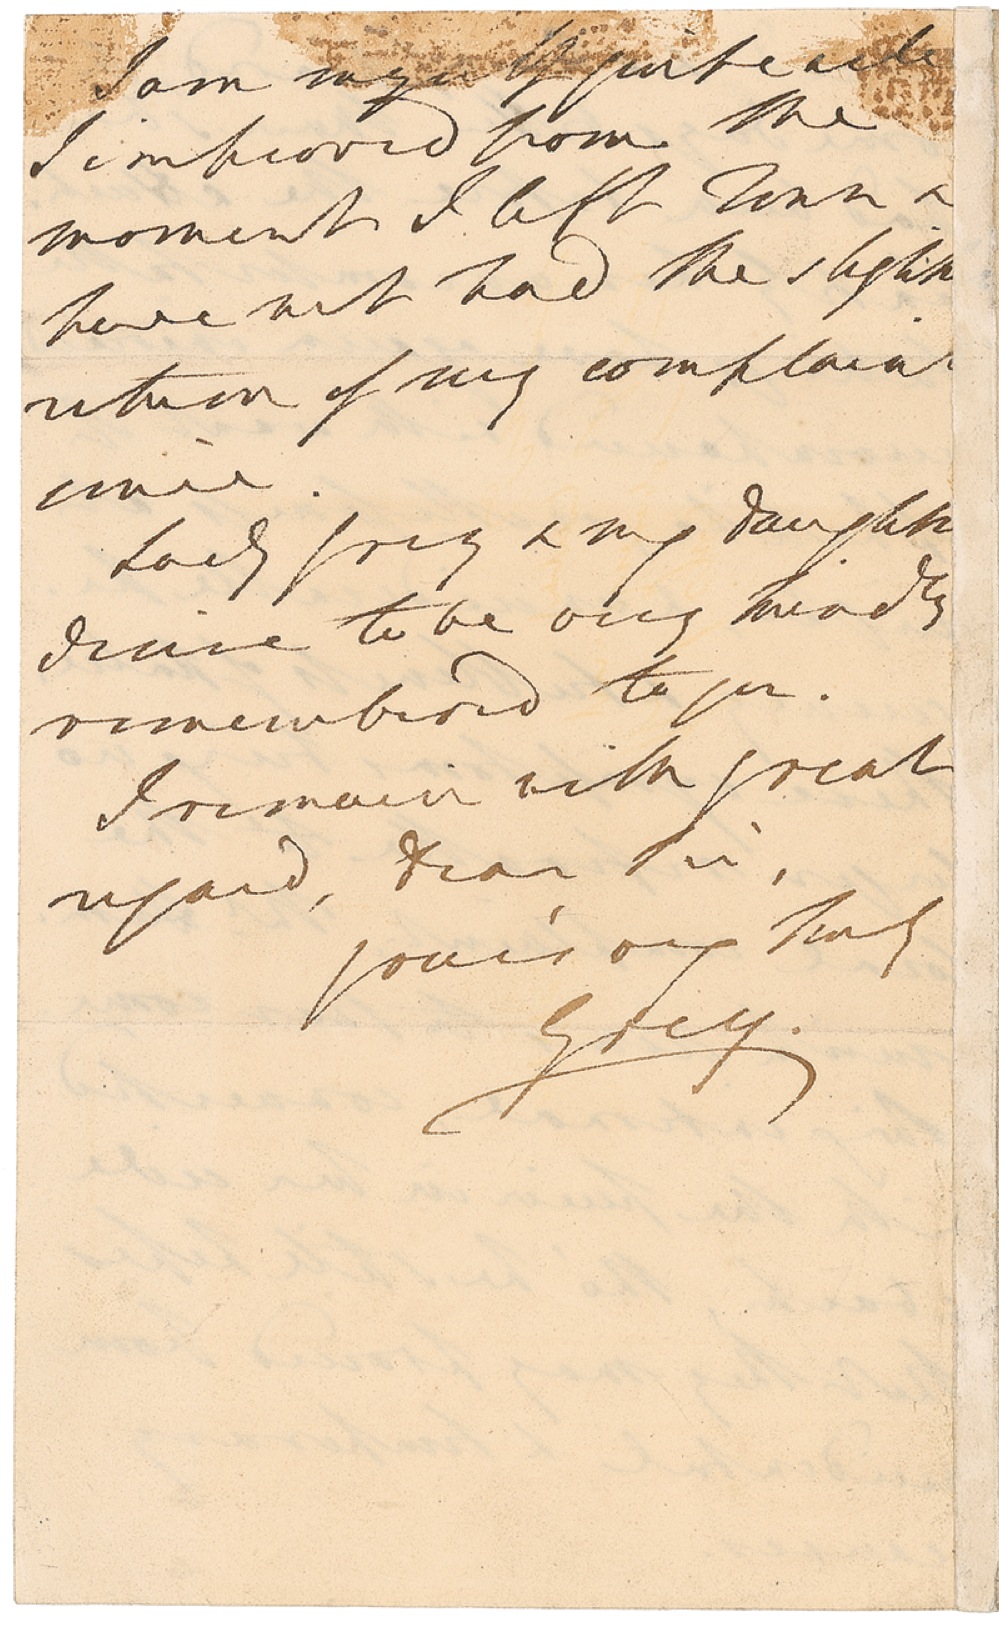 I am myself quite well
I improved from the
moment I left Town &
have not had the slightest
return of my complaint
since.
Lady Grey & my daughter
desire to be very kindly
remembered to you.
I remain with great
regard, Dear Sir,
yours very truly
Grey.